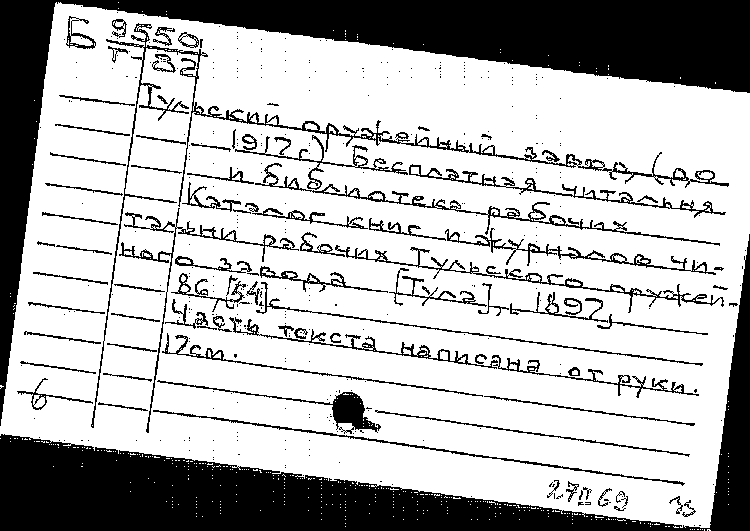 Б 9550
Т-82
Тульский оружейный завод (до
1917г.) Бесплатная читальня
и библиотека рабочих.
Каталог книг и журналов чи-
тальни рабочих Тульского оружей-
ного завода [Тула], 1897,
86, [54] с
Часть текста написана от руки.
17см.
6
27 II 69